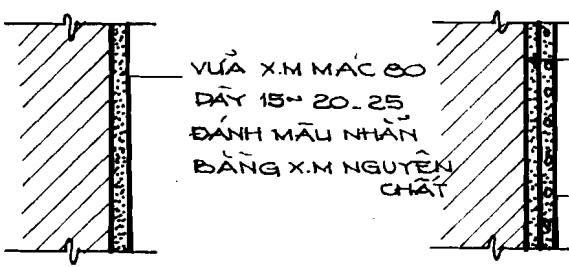 VỮA X.M MÁC 80
DÀY 15~20_25
ĐÁNH MÀU NHẴN
BẰNG X.M NGUYÊN
CHẤT